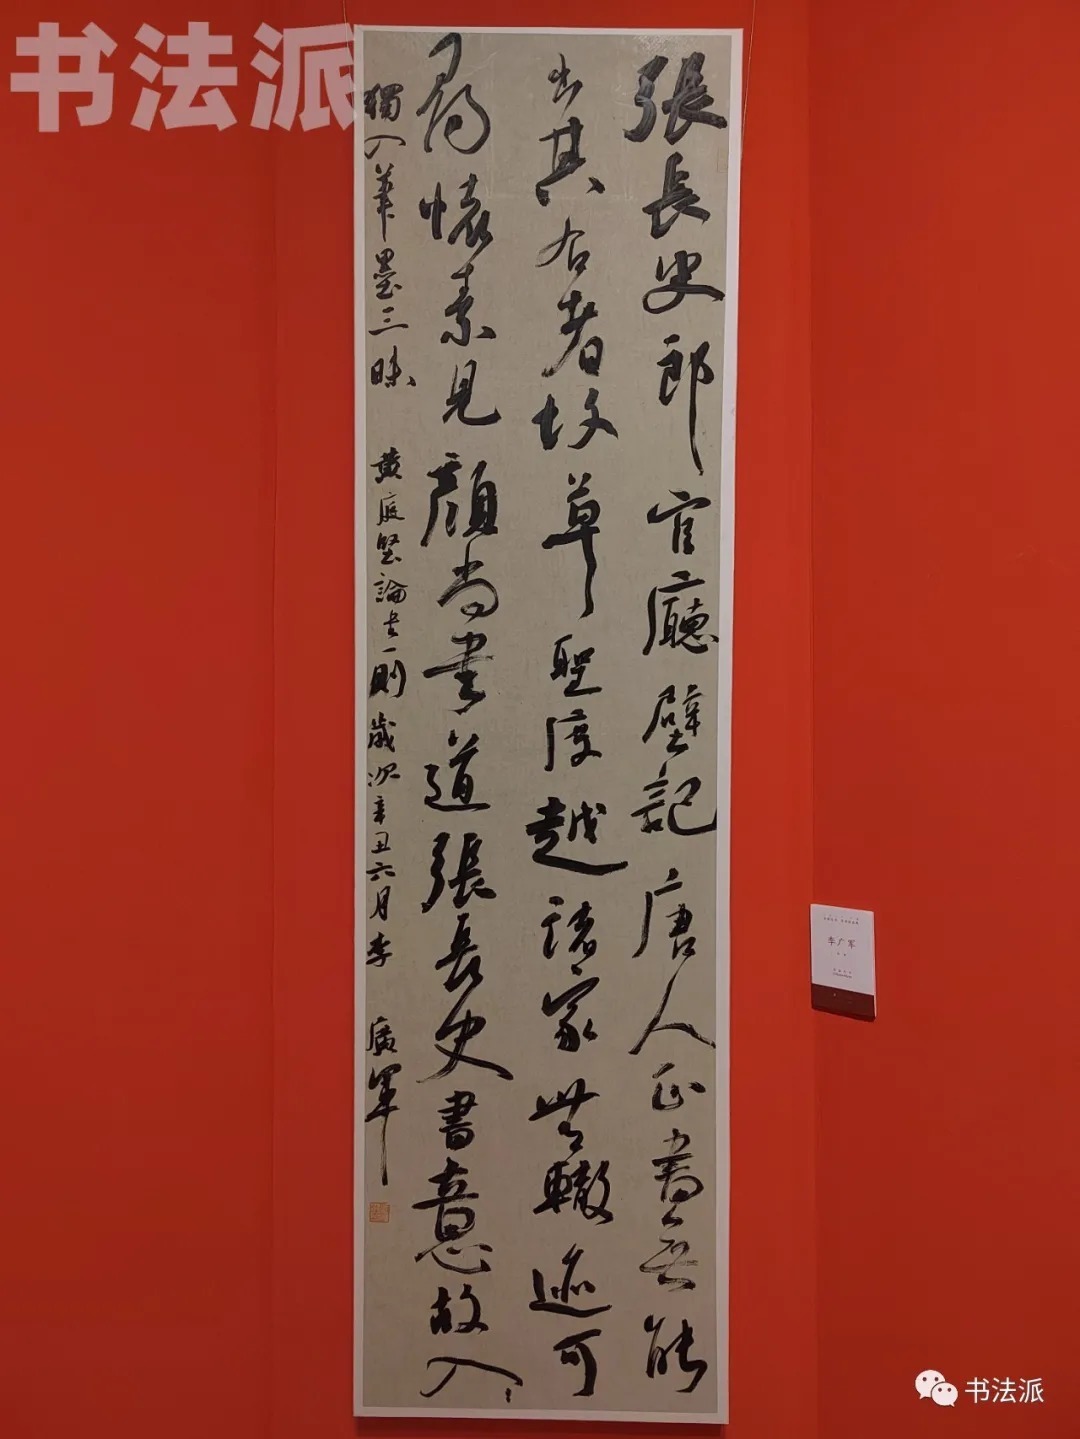 书法派
張長史郎官廳壁記唐人正書無能
出其右者故草聖度越諸家無轍迹可
尋懷素見顏尚書道張長史書意故入
獨入筆墨三昧
黄庭堅論書一則歲次辛丑六月李廣軍
李广军
书法派